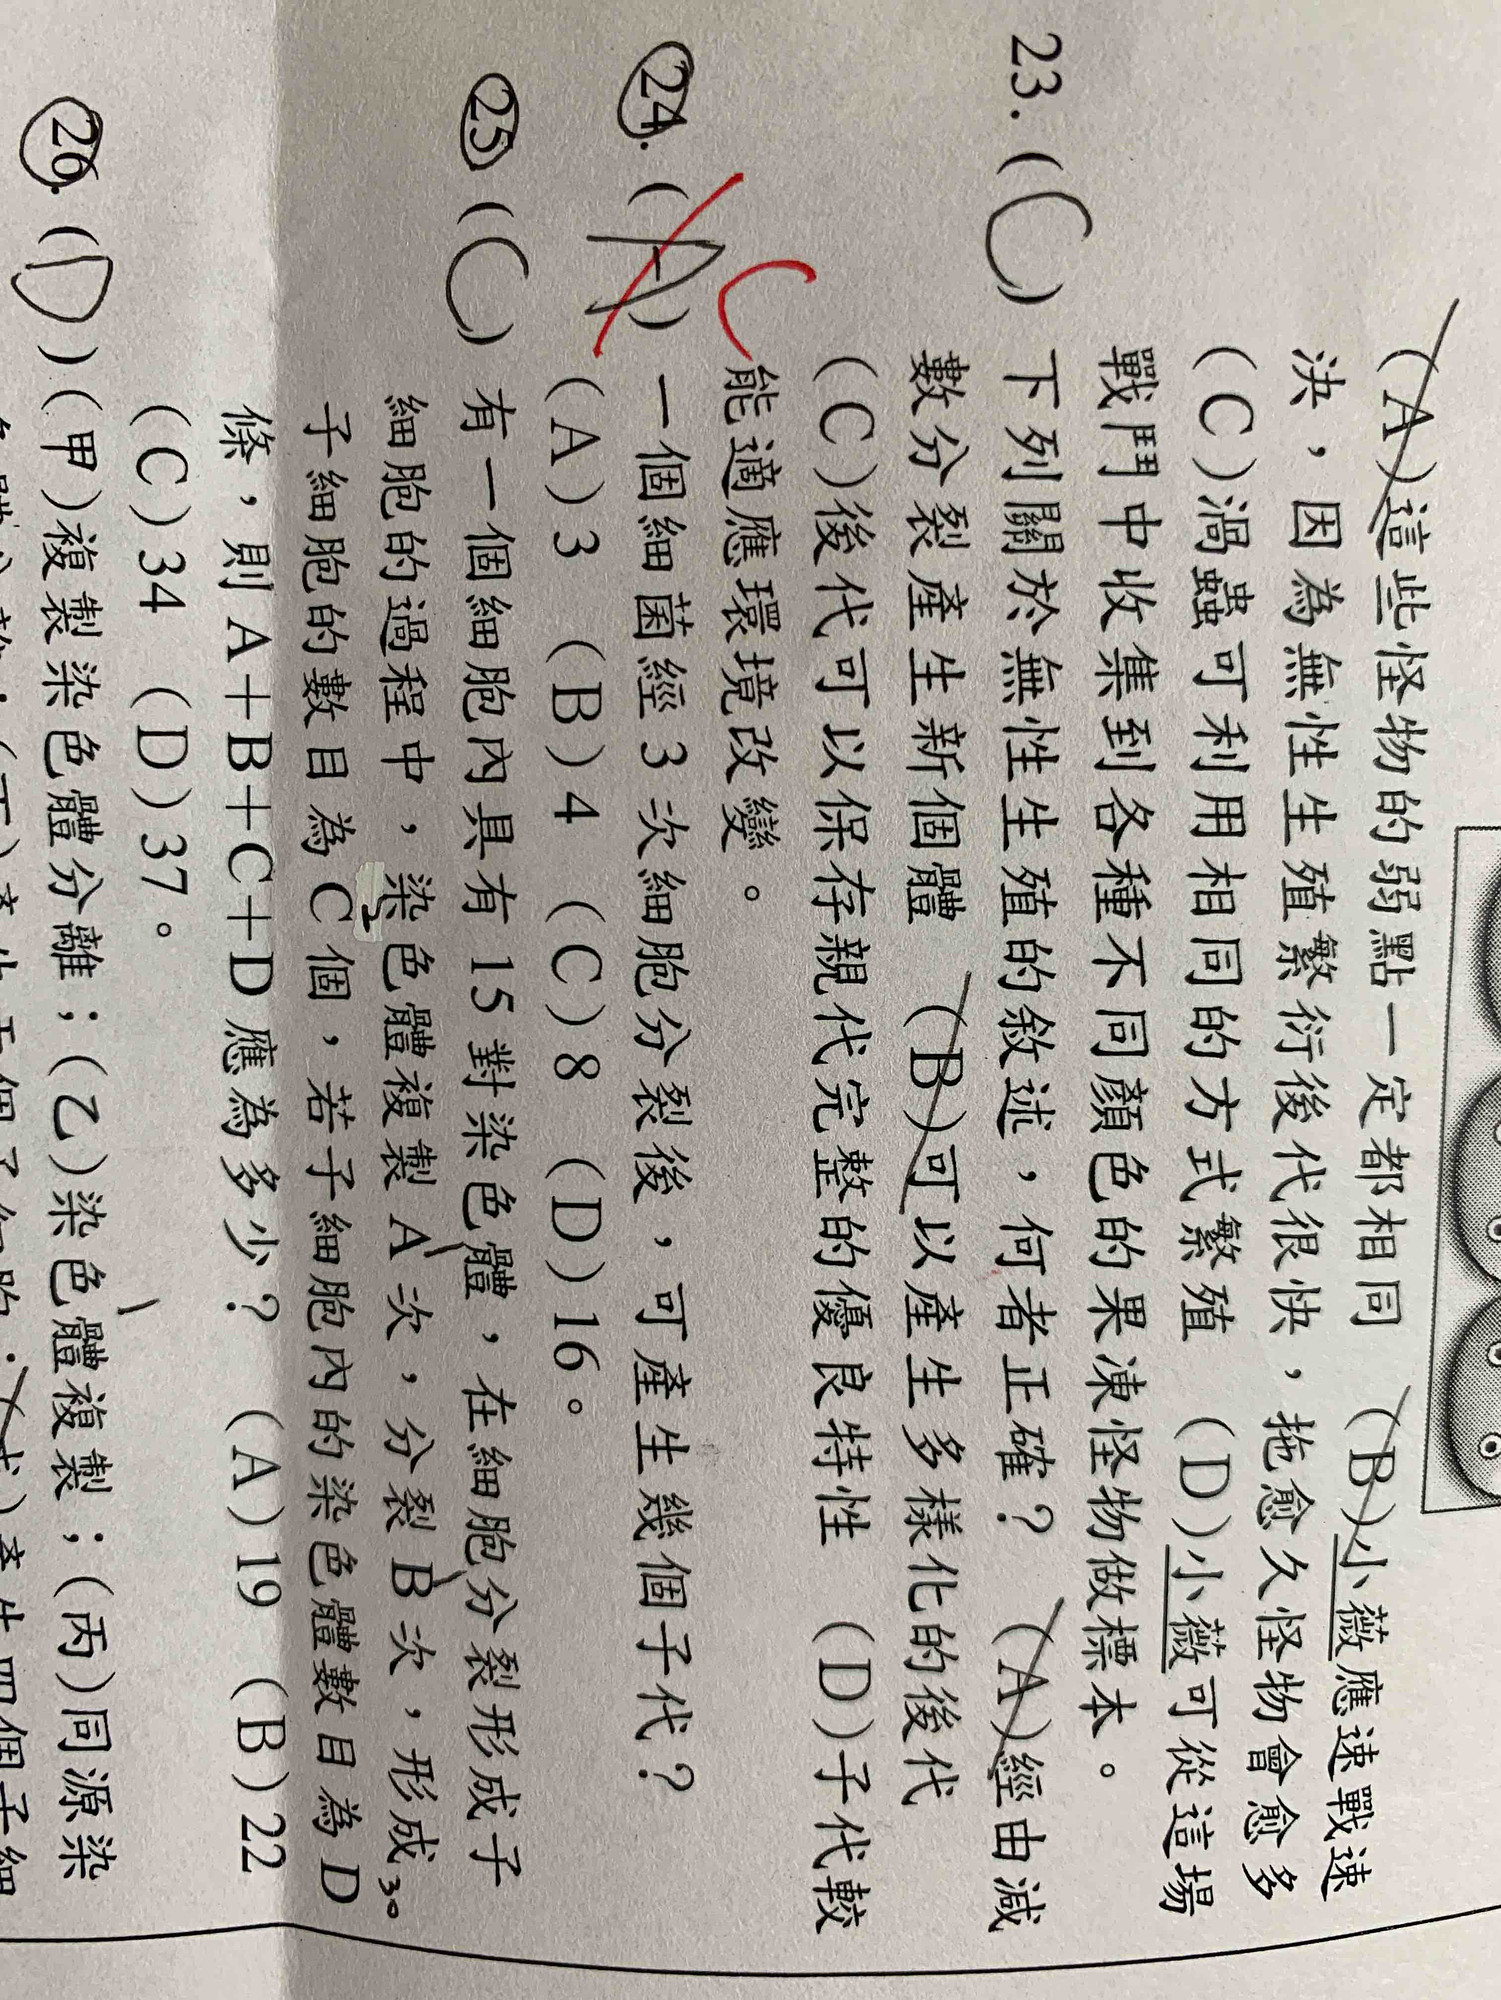 (A)這些怪物的弱點一定都相同 (B)小薇應速戰速
決，因為無性生殖繁衍後代很快，拖愈久怪物會愈多
(C)渦蟲可利用相同的方式繁殖 (D)小薇可從這場
戰鬥中收集到各種不同顏色的果凍怪物做標本。
23. (C) 下列關於無性生殖的敘述，何者正確？ (A)經由減
數分裂產生新個體 (B)可以產生多樣化的後代
(C)後代可以保存親代完整的優良特性 (D)子代較
能適應環境改變。
C
24. (A) 一個細菌經 3 次細胞分裂後，可產生幾個子代？
(A)3 (B)4 (C)8 (D)16。
25 (C) 有一個細胞內具有 15 對染色體，在細胞分裂形成子
細胞的過程中，染色體複製 A 次，分裂 B 次，形成
1 1 2 30
子細胞的數目為 C 個，若子細胞內的染色體數目為 D
條，則 A＋B＋C＋D 應為多少？ (A)19 (B)22
(C)34 (D)37。
26. (D) (甲)複製染色體分離；(乙)染色體複製；(丙)同源染